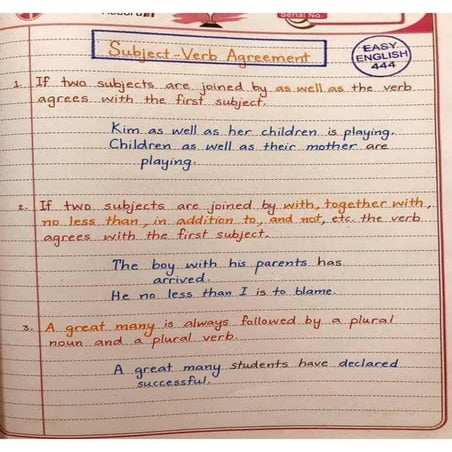 Serial No.
Subject-Verb Agreement
EASY
ENGLISH
444
1. If two subjects are joined by as well as the verb
agrees with the first subject.
Kim as well as her children is playing.
Children as well as their mother are
playing.
2. If two subjects are joined by with, together with,
no less than, in addition to, and not, etc. the verb
agrees with the first subject.
The boy with his parents has
arrived.
He no less than I is to blame.
3. A great many is always followed by a plural
noun and a plural verb.
A great many students have declared
successful.